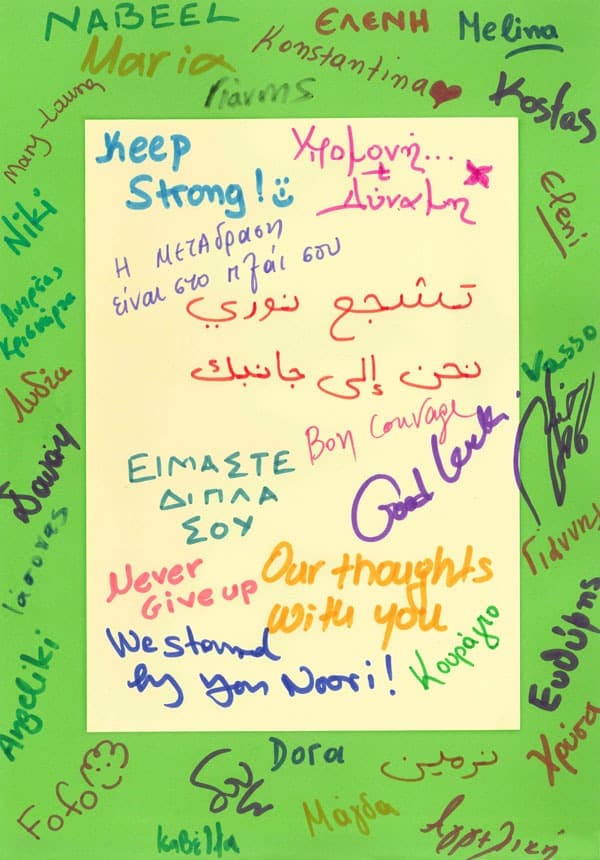 NABEEL
ΕΛΕΝΗ
Melina
Maria
Konstantina
Γιάννης
Kostas
Mary-Laura
Keep
Strong!
Υπομονή...
+
Δύναμη
Eleni
Niki
Η ΜΕΤΑδραση
είναι στο πλάι σου
تشجع نوري
نحن إلى جانبك
Vasso
Λυδία
Bon Courage
Good Luck
Δανάη
ΕΙΜΑΣΤΕ
ΔΙΠΛΑ
ΣΟΥ
Ιάσονας
Γιάννης
Never
Give up
Our thoughts
with you
We stand
by you Noori!
Κουράγιο
Ευθύμης
Angeliki
Χρύσα
Fofo
Dora
نرمين
Μάγδα
Κυβέλη
Αγγελική